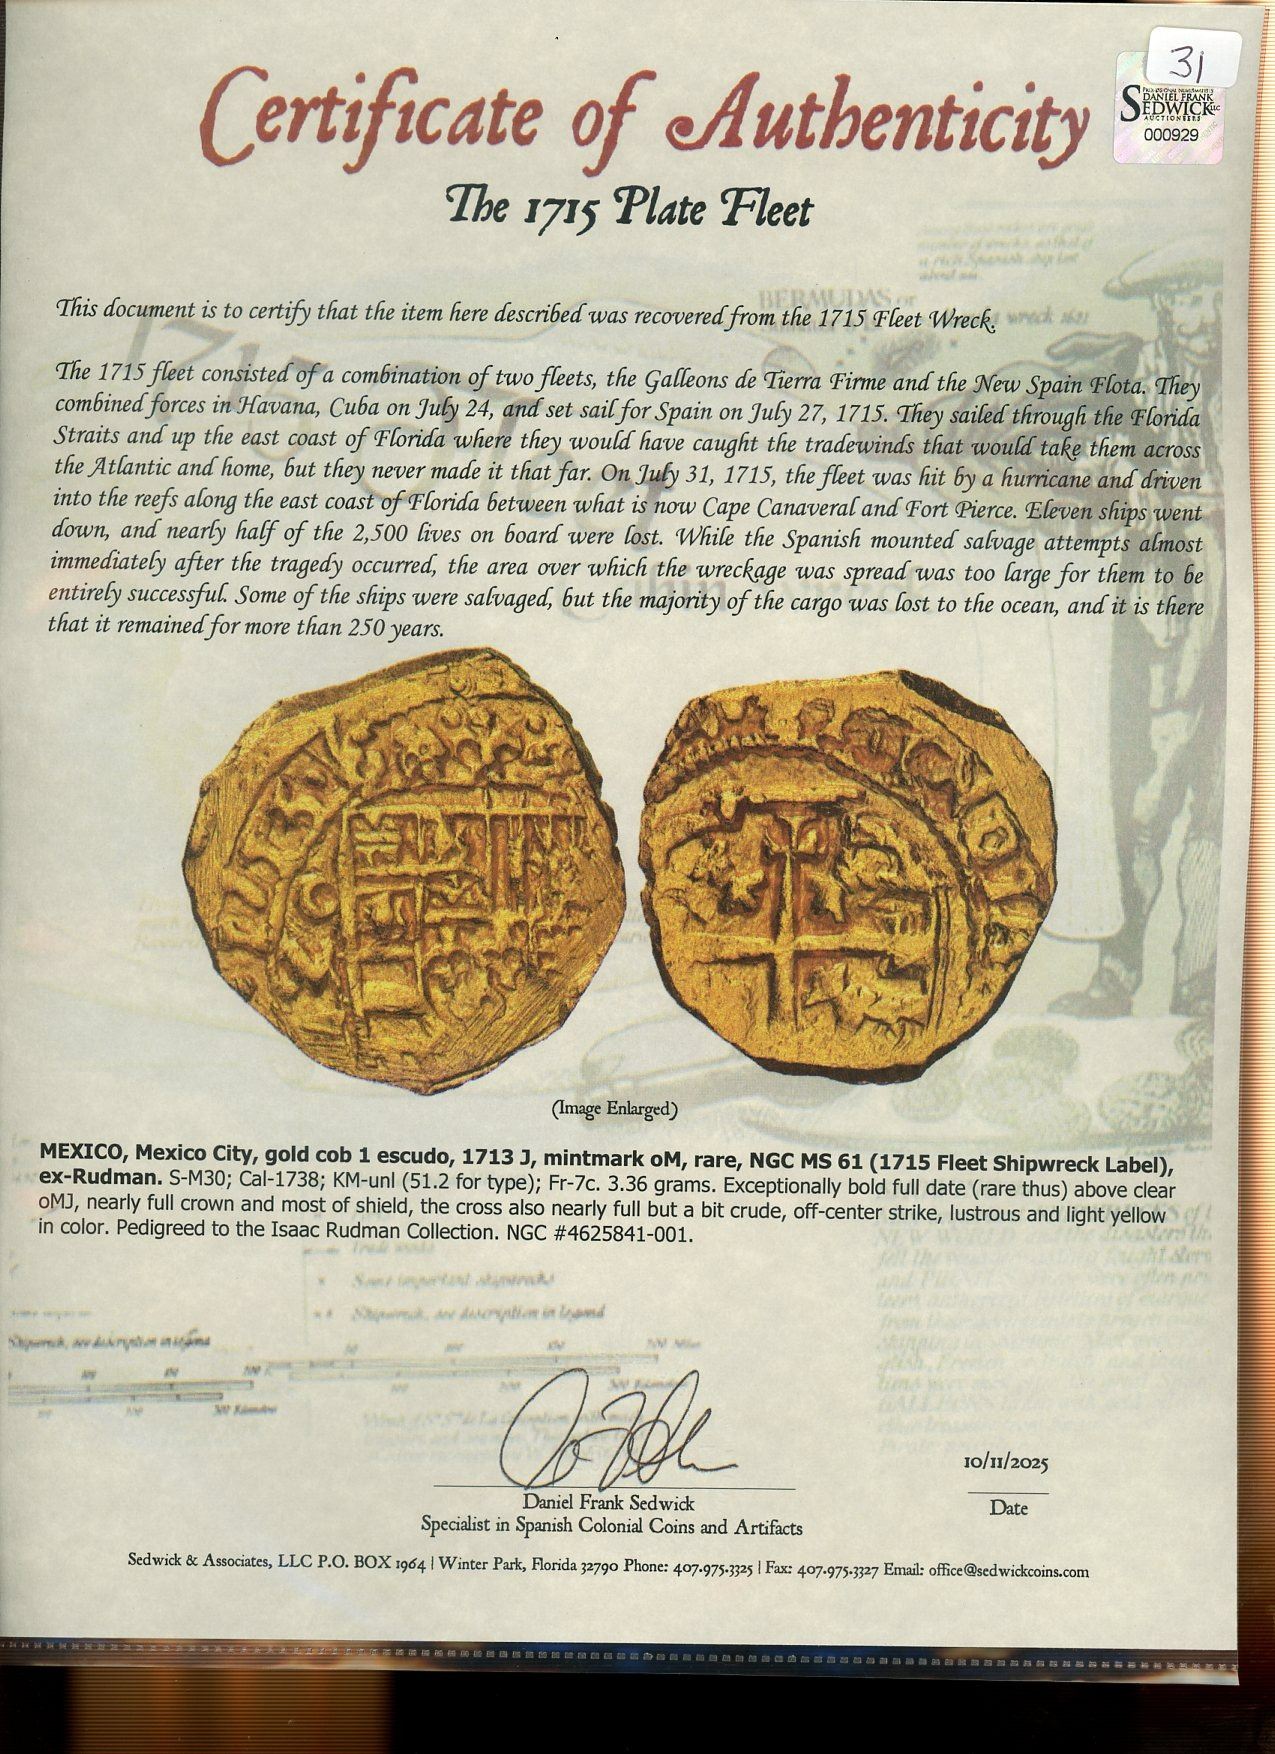 31
PROFESSIONAL NUMISMATISTS
DANIEL FRANK
SEDWICK LLC
AUCTIONEERS
000929
Certificate of Authenticity
The 1715 Plate Fleet
This document is to certify that the item here described was recovered from the 1715 Fleet Wreck.
The 1715 fleet consisted of a combination of two fleets, the Galleons de Tierra Firme and the New Spain Flota. They
combined forces in Havana, Cuba on July 24, and set sail for Spain on July 27, 1715. They sailed through the Florida
Straits and up the east coast of Florida where they would have caught the tradewinds that would take them across
the Atlantic and home, but they never made it that far. On July 31, 1715, the fleet was hit by a hurricane and driven
into the reefs along the east coast of Florida between what is now Cape Canaveral and Fort Pierce. Eleven ships went
down, and nearly half of the 2,500 lives on board were lost. While the Spanish mounted salvage attempts almost
immediately after the tragedy occurred, the area over which the wreckage was spread was too large for them to be
entirely successful. Some of the ships were salvaged, but the majority of the cargo was lost to the ocean, and it is there
that it remained for more than 250 years.
BERMUDAS or
wreck 1621
(Image Enlarged)
MEXICO, Mexico City, gold cob 1 escudo, 1713 J, mintmark oM, rare, NGC MS 61 (1715 Fleet Shipwreck Label),
ex-Rudman. S-M30; Cal-1738; KM-unl (51.2 for type); Fr-7c. 3.36 grams. Exceptionally bold full date (rare thus) above clear
oMJ, nearly full crown and most of shield, the cross also nearly full but a bit crude, off-center strike, lustrous and light yellow
in color. Pedigreed to the Isaac Rudman Collection. NGC #4625841-001.
Trade routes
Some important shipwrecks
Shipwreck, see description in legend
Shipwreck, see description in legend
10/11/2025
Daniel Frank Sedwick
Date
Specialist in Spanish Colonial Coins and Artifacts
Sedwick & Associates, LLC P.O. BOX 1964 | Winter Park, Florida 32790 Phone: 407.975.3325 | Fax: 407.975.3327 Email: office@sedwickcoins.com